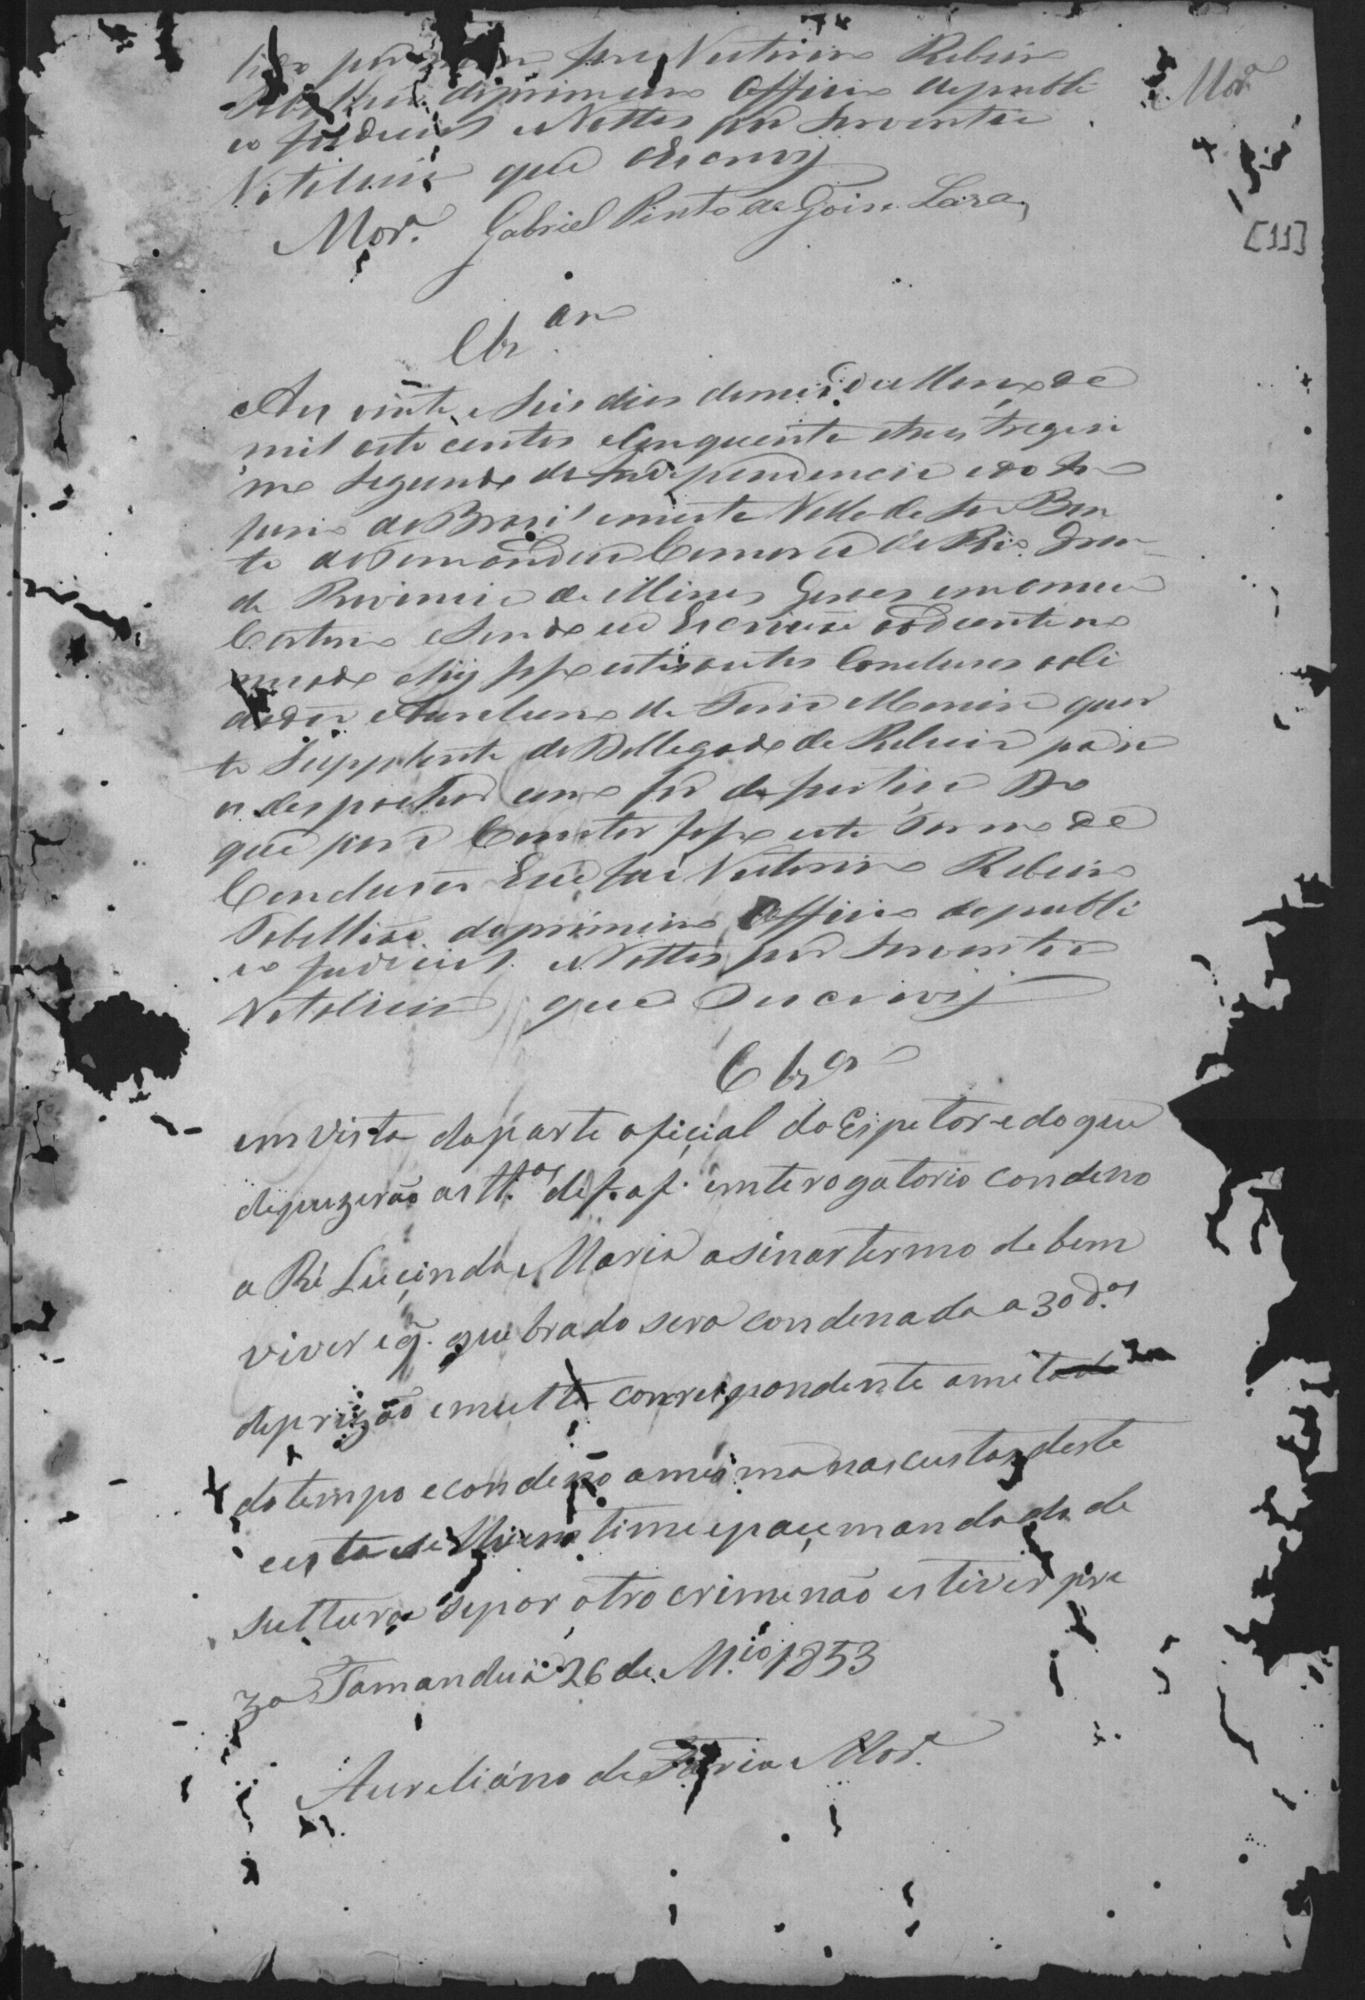 José Victorino Ribeiro
do primeiro Officio do publi
co Judicial e Nottas por Serventia
Vitalicia que escrevy
Mor.ª
Mor.ª Gabriel Pinto de Gois Lara
[11]
Clz.am
Aos vinte e seis dias do mes de Março de
mil oito centos e cinquenta e tres trigesi
mo segundo da Independencia e do Im
perio do Brazil em esta Villa de São Ben
to do Tamanduá Comarca do Rio Gran
de Provincia de Minas Geraes em o meu
Cartorio e sendo eu Escrivão ao diante no
meado e ahy faço estes autos Conclusos ao Ci
dadão Aureliano de Faria Moreira quar
to Supplente do Dellegado de Policia para
os despachar como for de justiça Do
que para Constar faço este Termo de
Concluzão Eu José Victorino Ribeiro
Tabellião do primeiro Officio do publi
co Judicial e Nottas por Serventia
Vitalicia que o escrevy
Clz.os
em vista da parte oficial do Espetor e do que
depuzerão as tt.as de f. a f. emterogatorio condeno
a Ré Lucinda Maria a sinar termo de bem
viver e q̃. quebrado sera condenada a 30 d.as
de prizão e multa correspondente a metade
do tempo e condeno a mesma nas custas deste
time e pace mandado de
sultura se por otro crime não estiver pre
za Tamanduá 26 de M.ço 1853
Aureliano de Faria Mor.ª